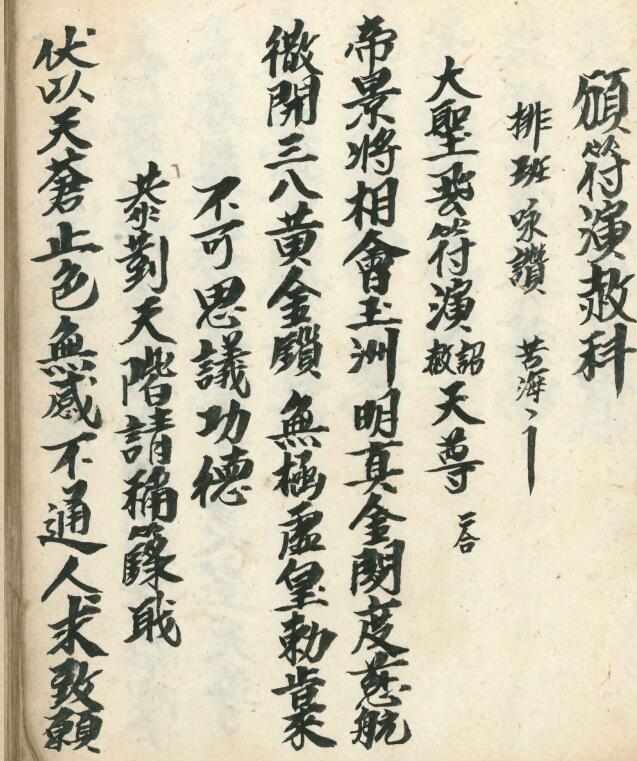 頒符演赦科
排班 咏讚 苦海〻丨
大聖符演詔赦天尊 三合
帝景將相會玉洲明真金閞度慈航
徹開三八黃金鎖無極虛皇勅肯來
不可思議功德
恭對天階請稱籙职
伏以天蒼止色無感不通人求致願